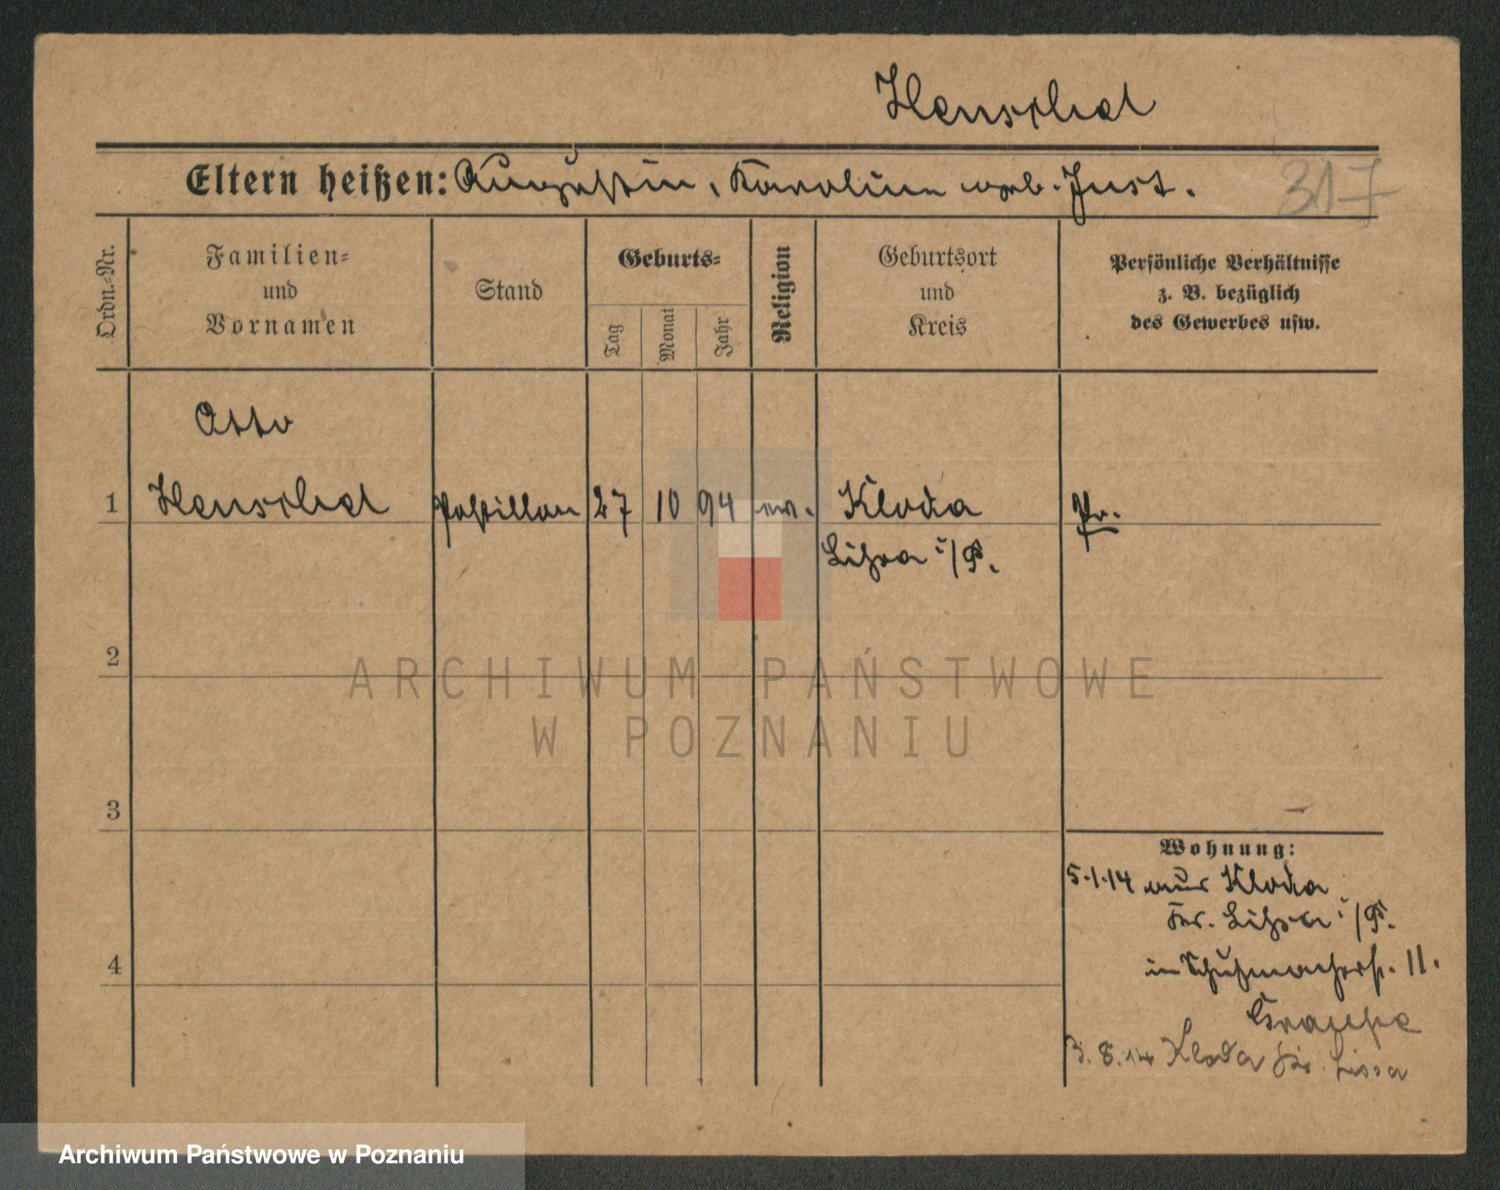 Henschel
Eltern heißen: Augustin, Karoline geb. Just.
317
Ordn.-Nr.
Familien-
und
Vornamen
Stand
Geburts-
Tag
Monat
Jahr
Religion
Geburtsort
und
Kreis
Persönliche Verhältnisse
z. B. bezüglich
des Gewerbes usw.
Otto
1 Henschel Postillon 27 10 94 ev. Kloda Pr.
Lissa i/P.
2
ARCHIWUM PAŃSTWOWE
W POZNANIU
3
Wohnung:
5.1.14 aus Kloda
Kr. Lissa i/P.
4
in Schuhmacherst. 11.
3.8.14 Kloda Kr. Lissa
Archiwum Państwowe w Poznaniu